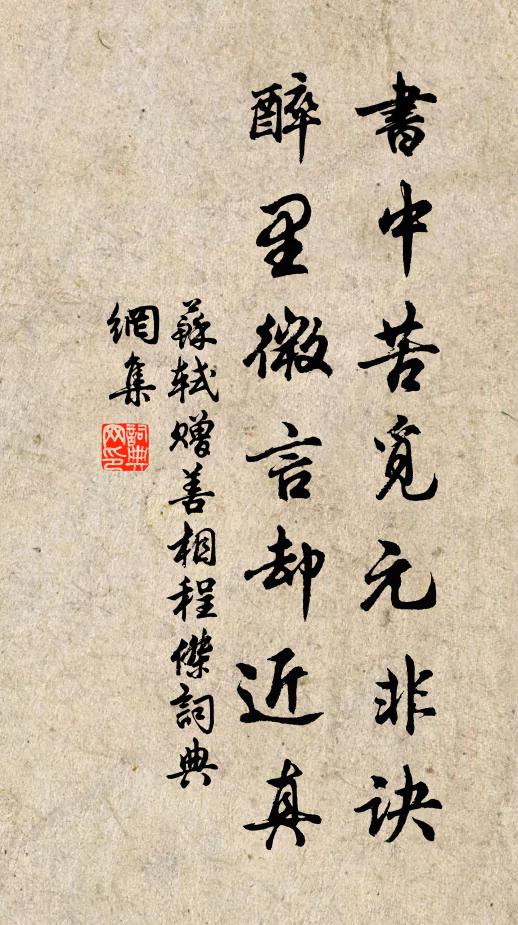 書中苦覓元非訣
醉里微言却近真
蘇軾贈善相程傑詞典
網集
詞典
网印